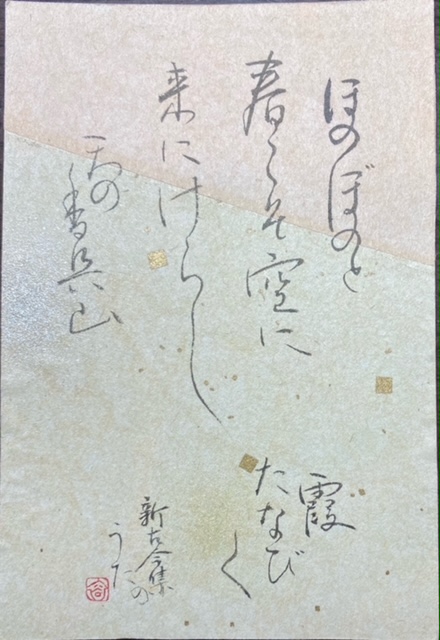 ほのぼのと
春こそ空に
来にけらし
天の香具山
霞
たなびく
新古今集の
うた